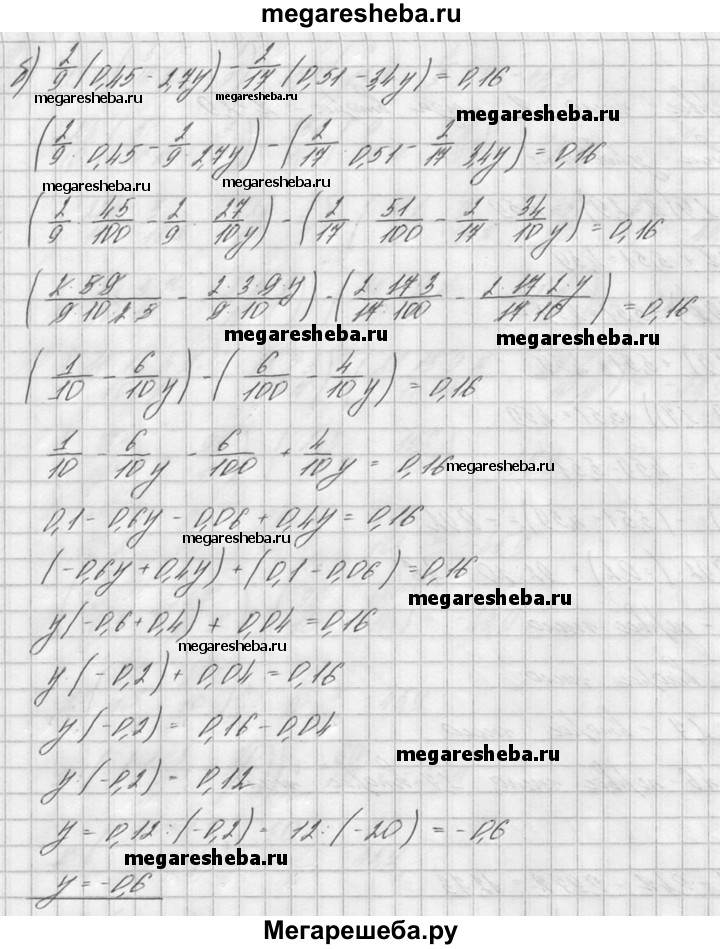 megaresheba.ru
б) 2/9 (0,45 - 2,7y) - 2/17 (0,51 - 3,4y) = 0,16
megaresheba.ru megaresheba.ru
megaresheba.ru
(2/9 · 0,45 - 2/9 · 2,7y) - (2/17 · 0,51 - 2/17 · 3,4y) = 0,16
megaresheba.ru megaresheba.ru
(2/9 · 45/100 - 2/9 · 27/10 y) - (2/17 · 51/100 - 2/17 · 34/10 y) = 0,16
(2·5·9/9·10·2·5 - 2·3·9y/9·10) - (2·17·3/17·100 - 2·17·2·y/17·10) = 0,16
megaresheba.ru megaresheba.ru
(1/10 - 6/10 y) - (6/100 - 4/10 y) = 0,16
1/10 - 6/10 y - 6/100 + 4/10 y = 0,16
megaresheba.ru
0,1 - 0,6y - 0,06 + 0,4y = 0,16
megaresheba.ru
(-0,6y + 0,4y) + (0,1 - 0,06) = 0,16
megaresheba.ru
y(-0,6 + 0,4) + 0,04 = 0,16
megaresheba.ru
y·(-0,2) + 0,04 = 0,16
y·(-0,2) = 0,16 - 0,04
megaresheba.ru
y·(-0,2) = 0,12
y = 0,12 : (-0,2) = 12 : (-20) = -0,6
megaresheba.ru
y = -0,6
Мегарешеба.ру